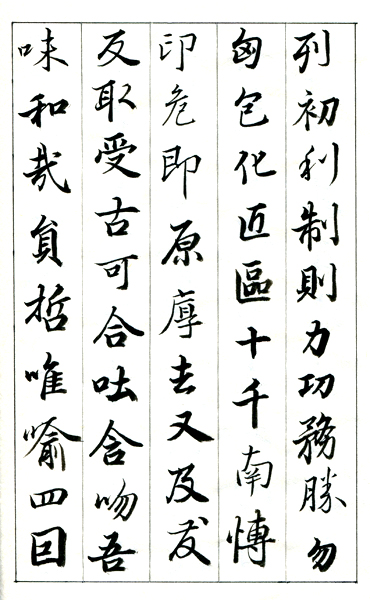 列初利制則力功務勝勿
匈包化匠區十千南博
印危即原厚去又及友
反取受古可合吐含吻吾
味和哉員哲唯喻四回